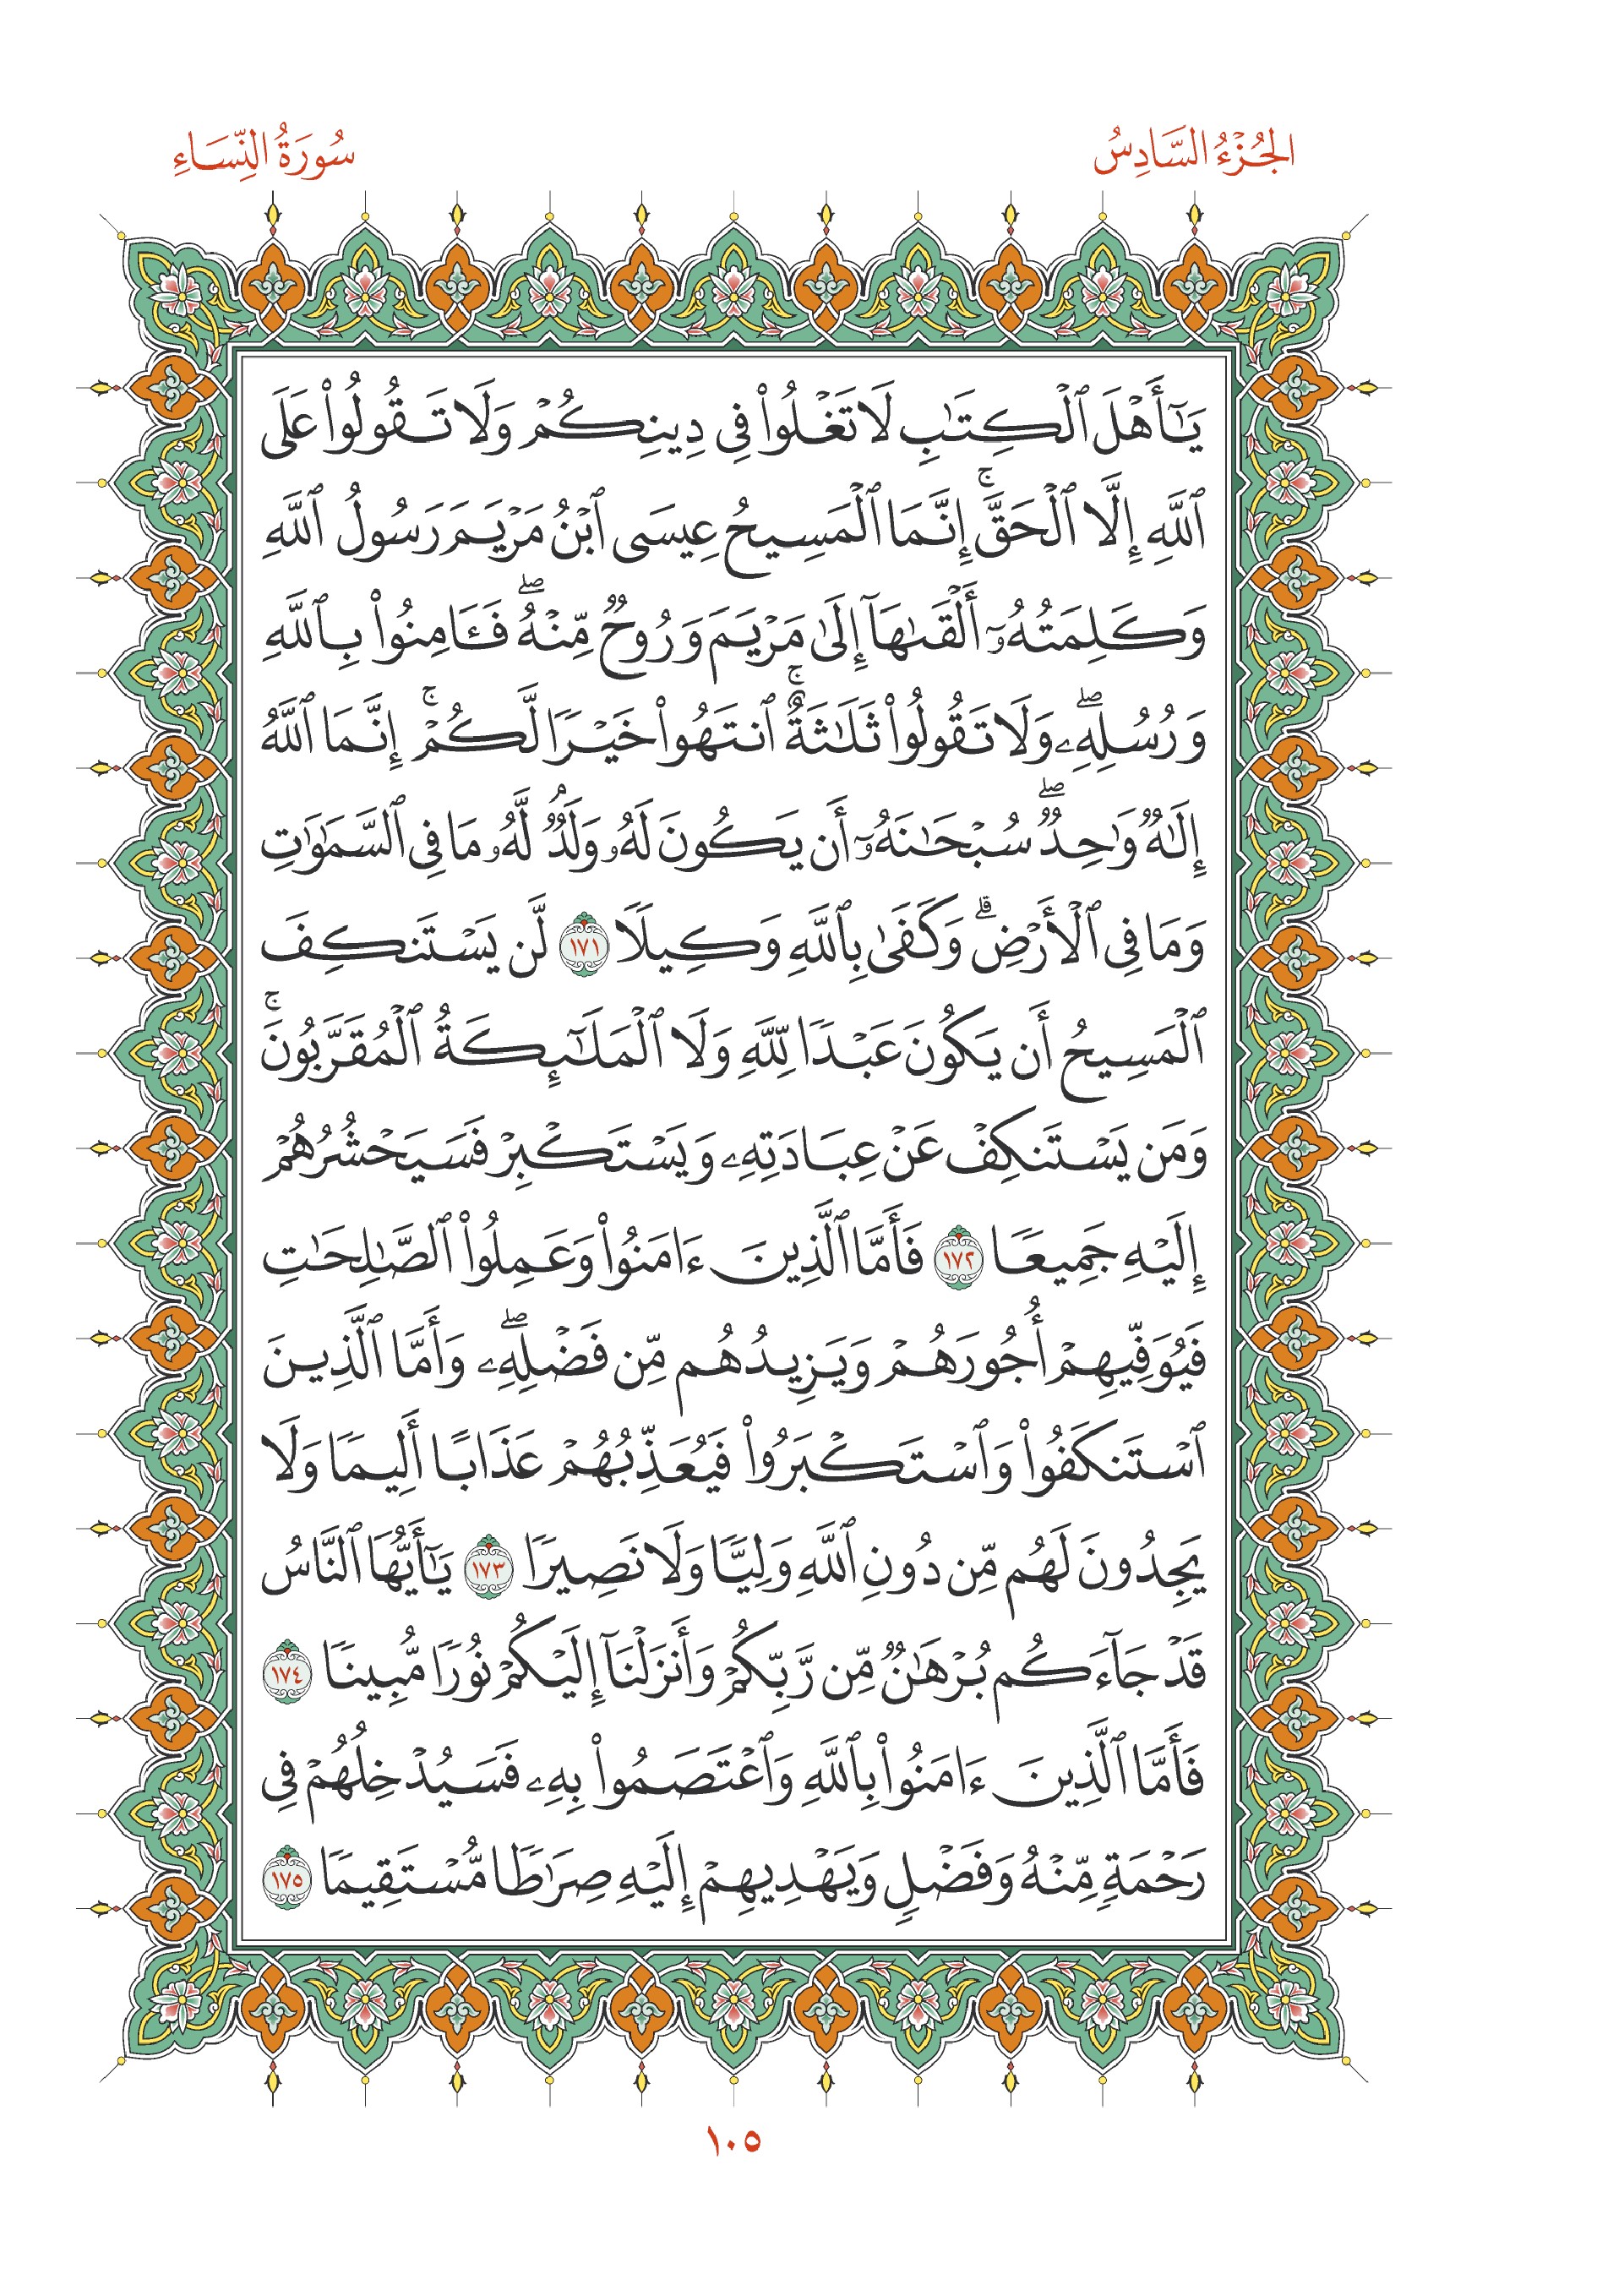 الجُزْءُ السَّادِسُ
سُورَةُ النِّسَاءِ
يَٰٓأَهۡلَ ٱلۡكِتَٰبِ لَا تَغۡلُواْ فِي دِينِكُمۡ وَلَا تَقُولُواْ عَلَى
ٱللَّهِ إِلَّا ٱلۡحَقَّۚ إِنَّمَا ٱلۡمَسِيحُ عِيسَى ٱبۡنُ مَرۡيَمَ رَسُولُ ٱللَّهِ
وَكَلِمَتُهُۥٓ أَلۡقَىٰهَآ إِلَىٰ مَرۡيَمَ وَرُوحٞ مِّنۡهُۖ فَـَٔامِنُواْ بِٱللَّهِ
وَرُسُلِهِۦۖ وَلَا تَقُولُواْ ثَلَٰثَةٌۚ ٱنتَهُواْ خَيۡرٗا لَّكُمۡۚ إِنَّمَا ٱللَّهُ
إِلَٰهٞ وَٰحِدٞۖ سُبۡحَٰنَهُۥٓ أَن يَكُونَ لَهُۥ وَلَدٞۘ لَّهُۥ مَا فِي ٱلسَّمَٰوَٰتِ
وَمَا فِي ٱلۡأَرۡضِۗ وَكَفَىٰ بِٱللَّهِ وَكِيلٗا ١٧١ لَّن يَسۡتَنكِفَ
ٱلۡمَسِيحُ أَن يَكُونَ عَبۡدٗا لِّلَّهِ وَلَا ٱلۡمَلَٰٓئِكَةُ ٱلۡمُقَرَّبُونَۚ
وَمَن يَسۡتَنكِفۡ عَنۡ عِبَادَتِهِۦ وَيَسۡتَكۡبِرۡ فَسَيَحۡشُرُهُمۡ
إِلَيۡهِ جَمِيعٗا ١٧٢ فَأَمَّا ٱلَّذِينَ ءَامَنُواْ وَعَمِلُواْ ٱلصَّٰلِحَٰتِ
فَيُوَفِّيهِمۡ أُجُورَهُمۡ وَيَزِيدُهُم مِّن فَضۡلِهِۦۖ وَأَمَّا ٱلَّذِينَ
ٱسۡتَنكَفُواْ وَٱسۡتَكۡبَرُواْ فَيُعَذِّبُهُمۡ عَذَابًا أَلِيمٗا وَلَا
يَجِدُونَ لَهُم مِّن دُونِ ٱللَّهِ وَلِيّٗا وَلَا نَصِيرٗا ١٧٣ يَٰٓأَيُّهَا ٱلنَّاسُ
قَدۡ جَآءَكُم بُرۡهَٰنٞ مِّن رَّبِّكُمۡ وَأَنزَلۡنَآ إِلَيۡكُمۡ نُورٗا مُّبِينٗا ١٧٤
فَأَمَّا ٱلَّذِينَ ءَامَنُواْ بِٱللَّهِ وَٱعۡتَصَمُواْ بِهِۦ فَسَيُدۡخِلُهُمۡ فِي
رَحۡمَةٖ مِّنۡهُ وَفَضۡلٖ وَيَهۡدِيهِمۡ إِلَيۡهِ صِرَٰطٗا مُّسۡتَقِيمٗا ١٧٥
١٠٥